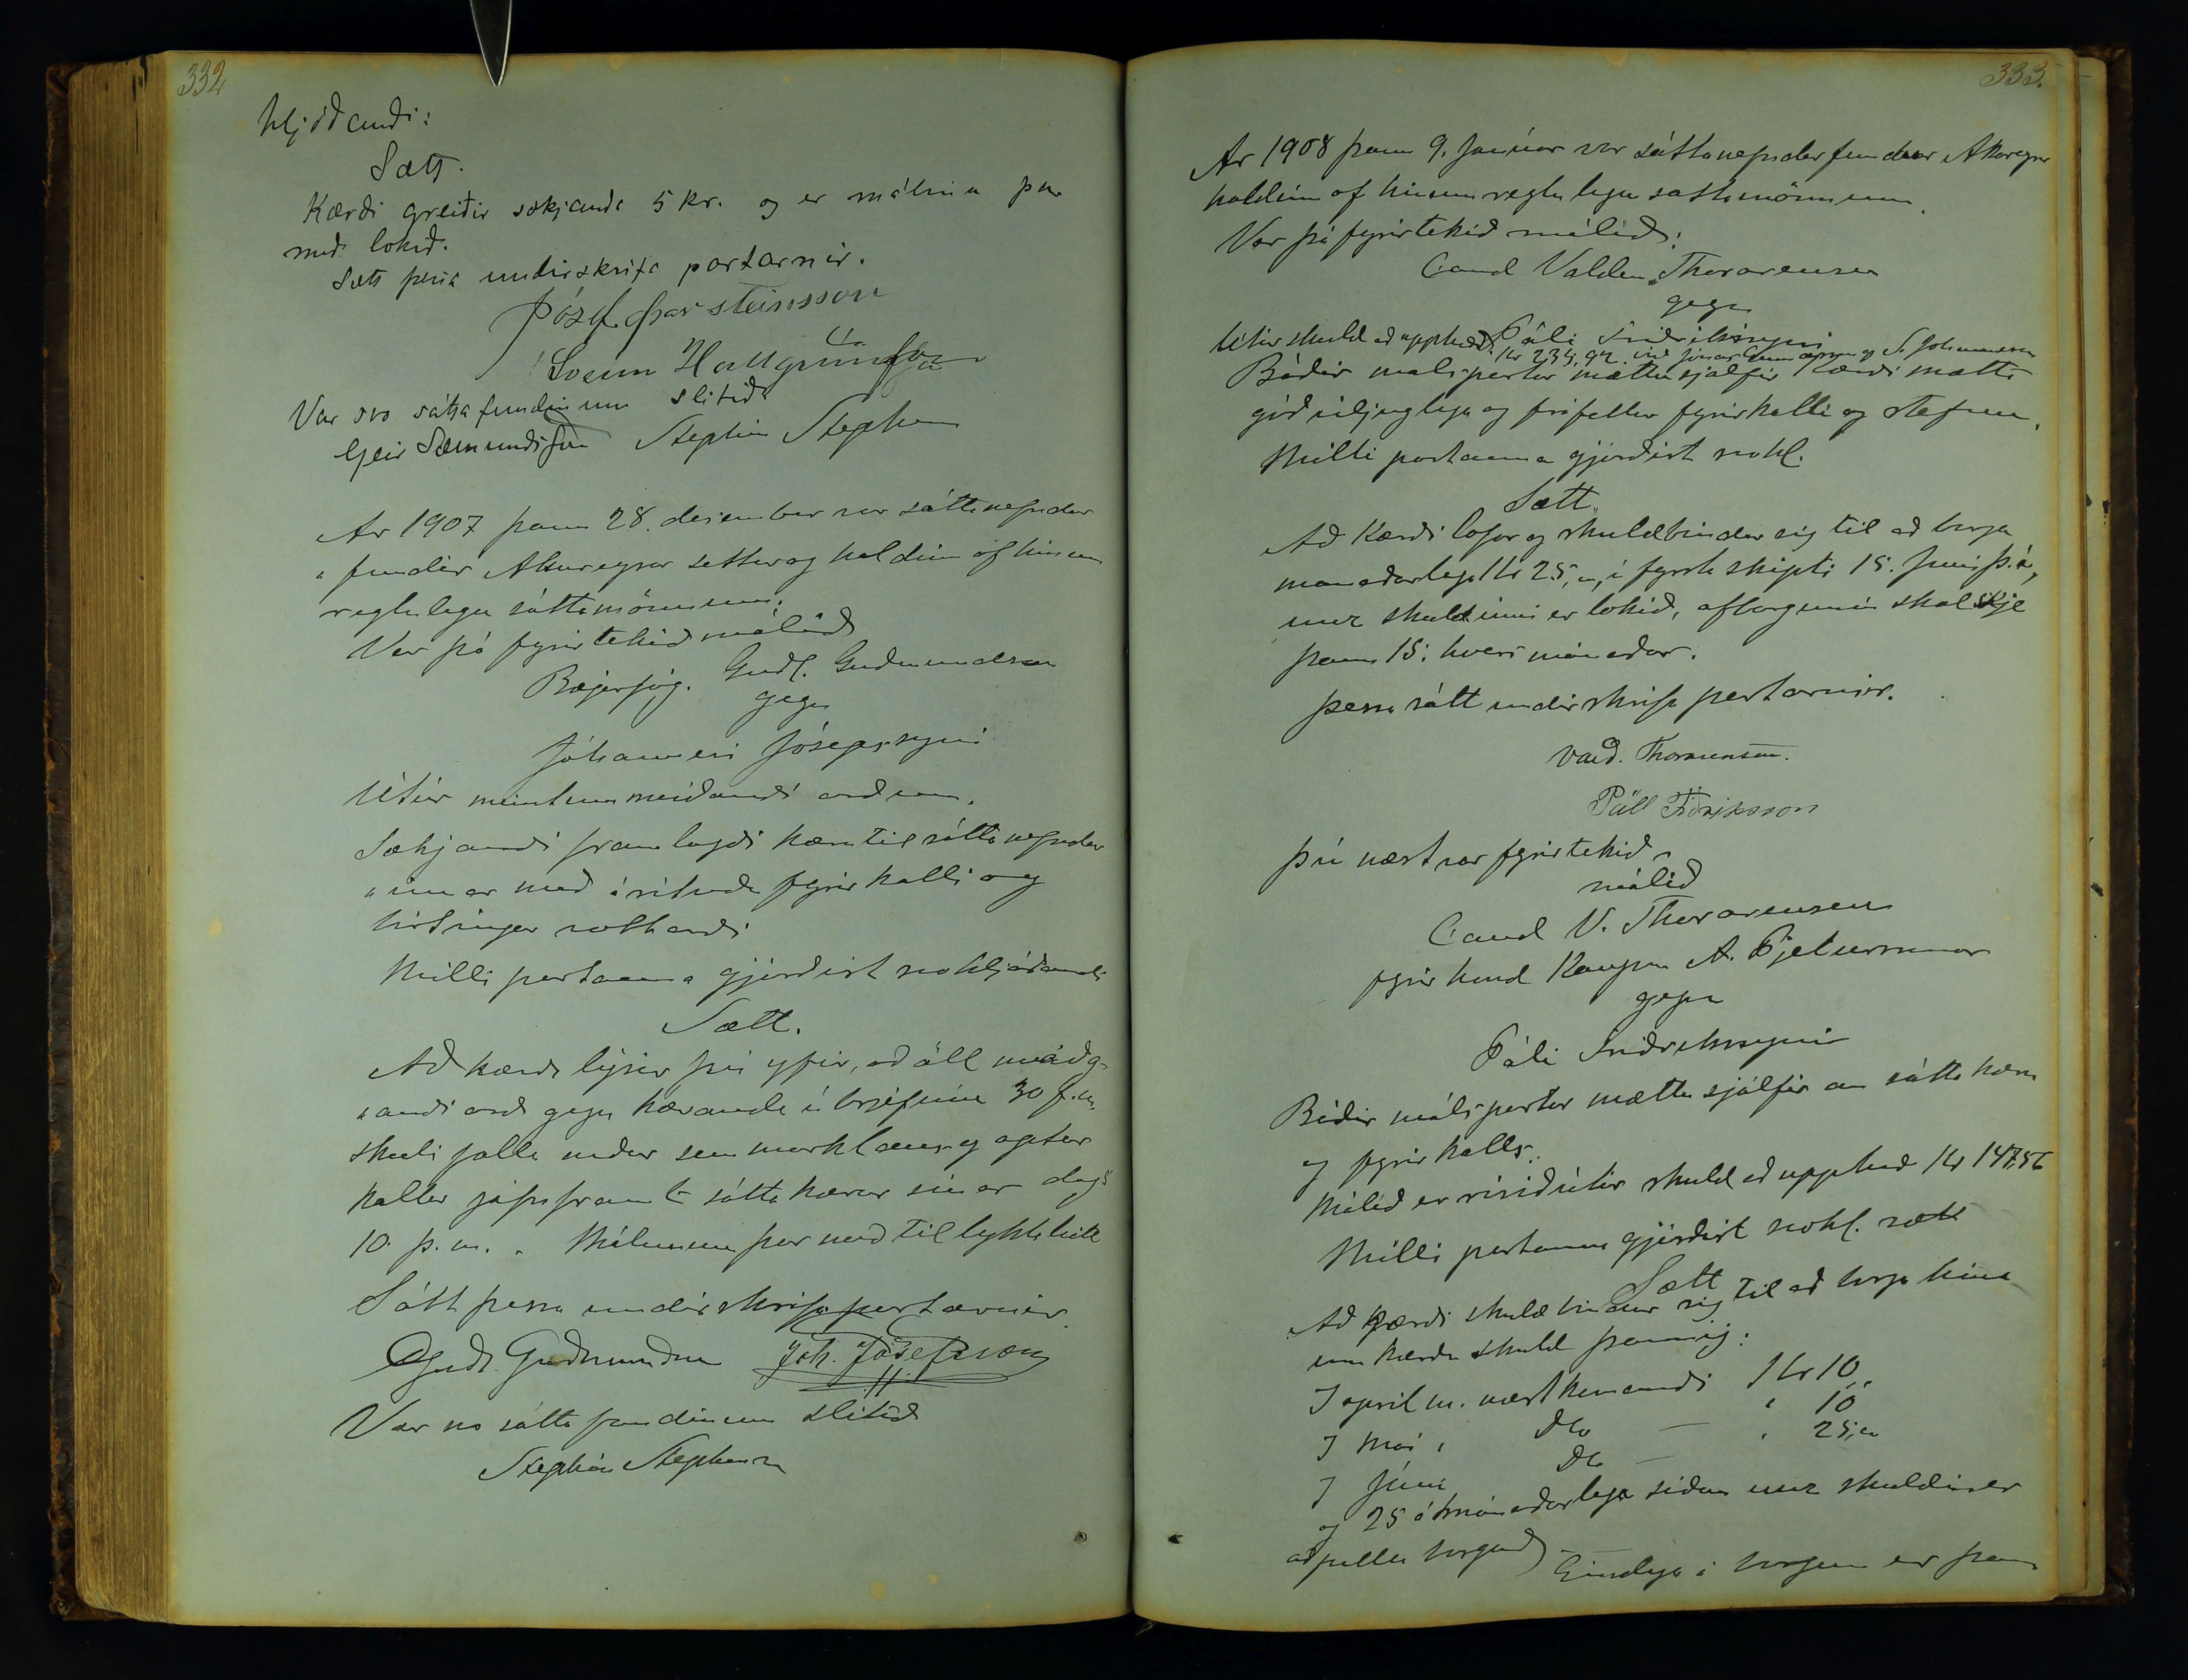 332
hljóðandi:
Sætt.
Kærði greiðir sækjanda 5 kr. og er málinu þar
með lokið.
Sætt þessa undirskrifa partarnir.
Jósef Þorsteinsson
Sveinn Hallgrímsson
Var svo sáttafundinum slitið
Geir Sæmundsson Stephán Stephensen
Ár 1907 þann 28. desember var sáttanefndar
"fundur Akureyrar settur og haldinn af hinum
reglulegu sáttamönnum.
Var þá fyrirtekið málið
Bæjarfóg. Guðl. Guðmundsson
gegn
Jóhannesi Jósepssyni
Útúr meintum meiðandi orðum.
Sækjandi framlagði kæru til sáttanefndar
"innar með árituðu fyrirkalli og
birtingar vottorði
Milli partanna gjörðist svohljóðandi
Sætt.
Að kærði lýsir því yfir, að öll meiðg-
"andi orð gegn kæranda í brjefinu 30 f.m.
skuli falla niður sem marklaus og aptur
kallar jafnframt sáttakæru sínar dags
10 þ.m. Málinu þar með til lykta leitt
Sátt þessa undirskrifa partarnir.
Guðl. Guðmundsson Jóh. Jósefsson
Var svo sáttafundinum slitið
Stephán Stephensen
333.
Ár 1908 þann 9. Janúar var sáttanefndarfundur Akureyrar
haldinn af hinum reglulegu sáttamönnum.
Var þá fyrirtekið málið:
Cand Valdem. Thorarensen
gegn
Páli Friðrikssyni
Útúr skuld að upphæð kr 234,92 við Jónas Gunnarsson og S. Jóhannesson
Báðir málspartar mættu sjálfir Kærði mætti
góðviljuglega og frífellur fyrirkalli og stefnu.
Milli partanna gjörðist svohl.
Sætt.
Að Kærði lofar og skuldbindur sig til að borga
mánaðarlega Kr 25,00, í fyrsta skipti 15. Júní þ.á,
unz skuldinni er lokið, afborgunin skal skje
þann 15. hvers mánaðar.
Þessa sátt undirskrifa partarnir.
Vald. Thorarensen.
Páll Friðriksson
Því næst var fyrirtekið
málið
Cand V. Thorarensen
fyrir hönd Kaupm A. Pjeturssonar
gegn
Páli Friðrikssyni
Báðir málspartar mættu sjálfir án sáttakæru
og fyrirkalls.
Málið er risið útúr skuld að upphæð Kr 147,56
Milli partanna gjörðist svohl. sætt
Sætt
Að Kærði skuldbindur sig til að borga hina
umkærðu skuld þannig:
Í apríl m. næstkomandi Kr 10,"
Í Maí " Do — " 10
Í Júní Do — " 25,00
og 25 á mánaðarlega síðan unz skuldin er
að fullu borguð. Eindagi á borgun er þann